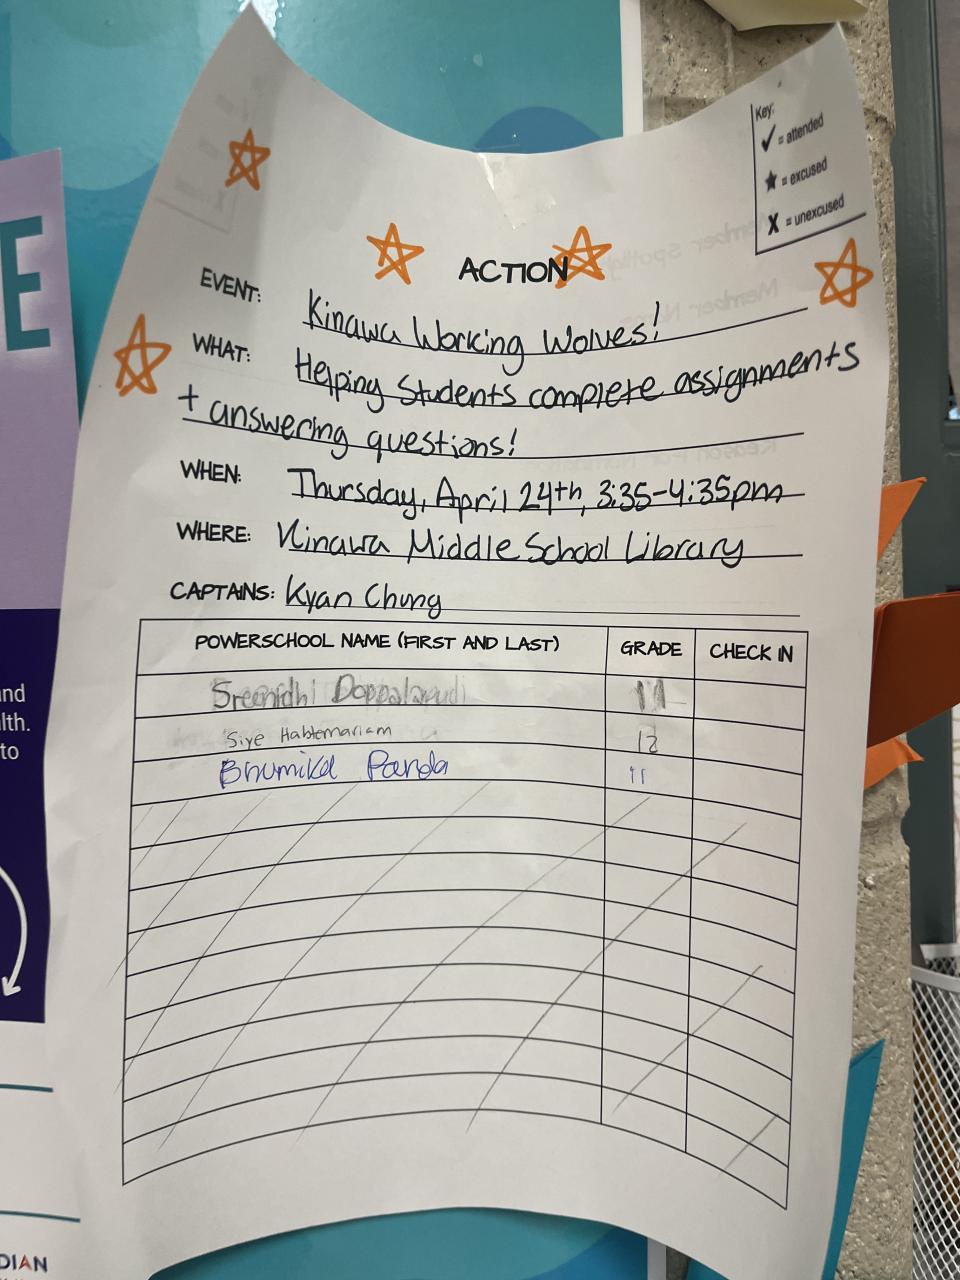 Key:
✓ = attended
★ = excused
X = unexcused
ACTION
EVENT: Kinawa Working Wolves!
WHAT: Helping Students complete assignments
+ answering questions!
WHEN: Thursday, April 24th, 3:35-4:35pm
WHERE: Kinawa Middle School Library
CAPTAINS: Kyan Chung
POWERSCHOOL NAME (FIRST AND LAST) GRADE CHECK IN
Sreenidhi 11
Siye Habtemariam 12
Bhumika Panda 11
E
and
lth.
to
DIAN